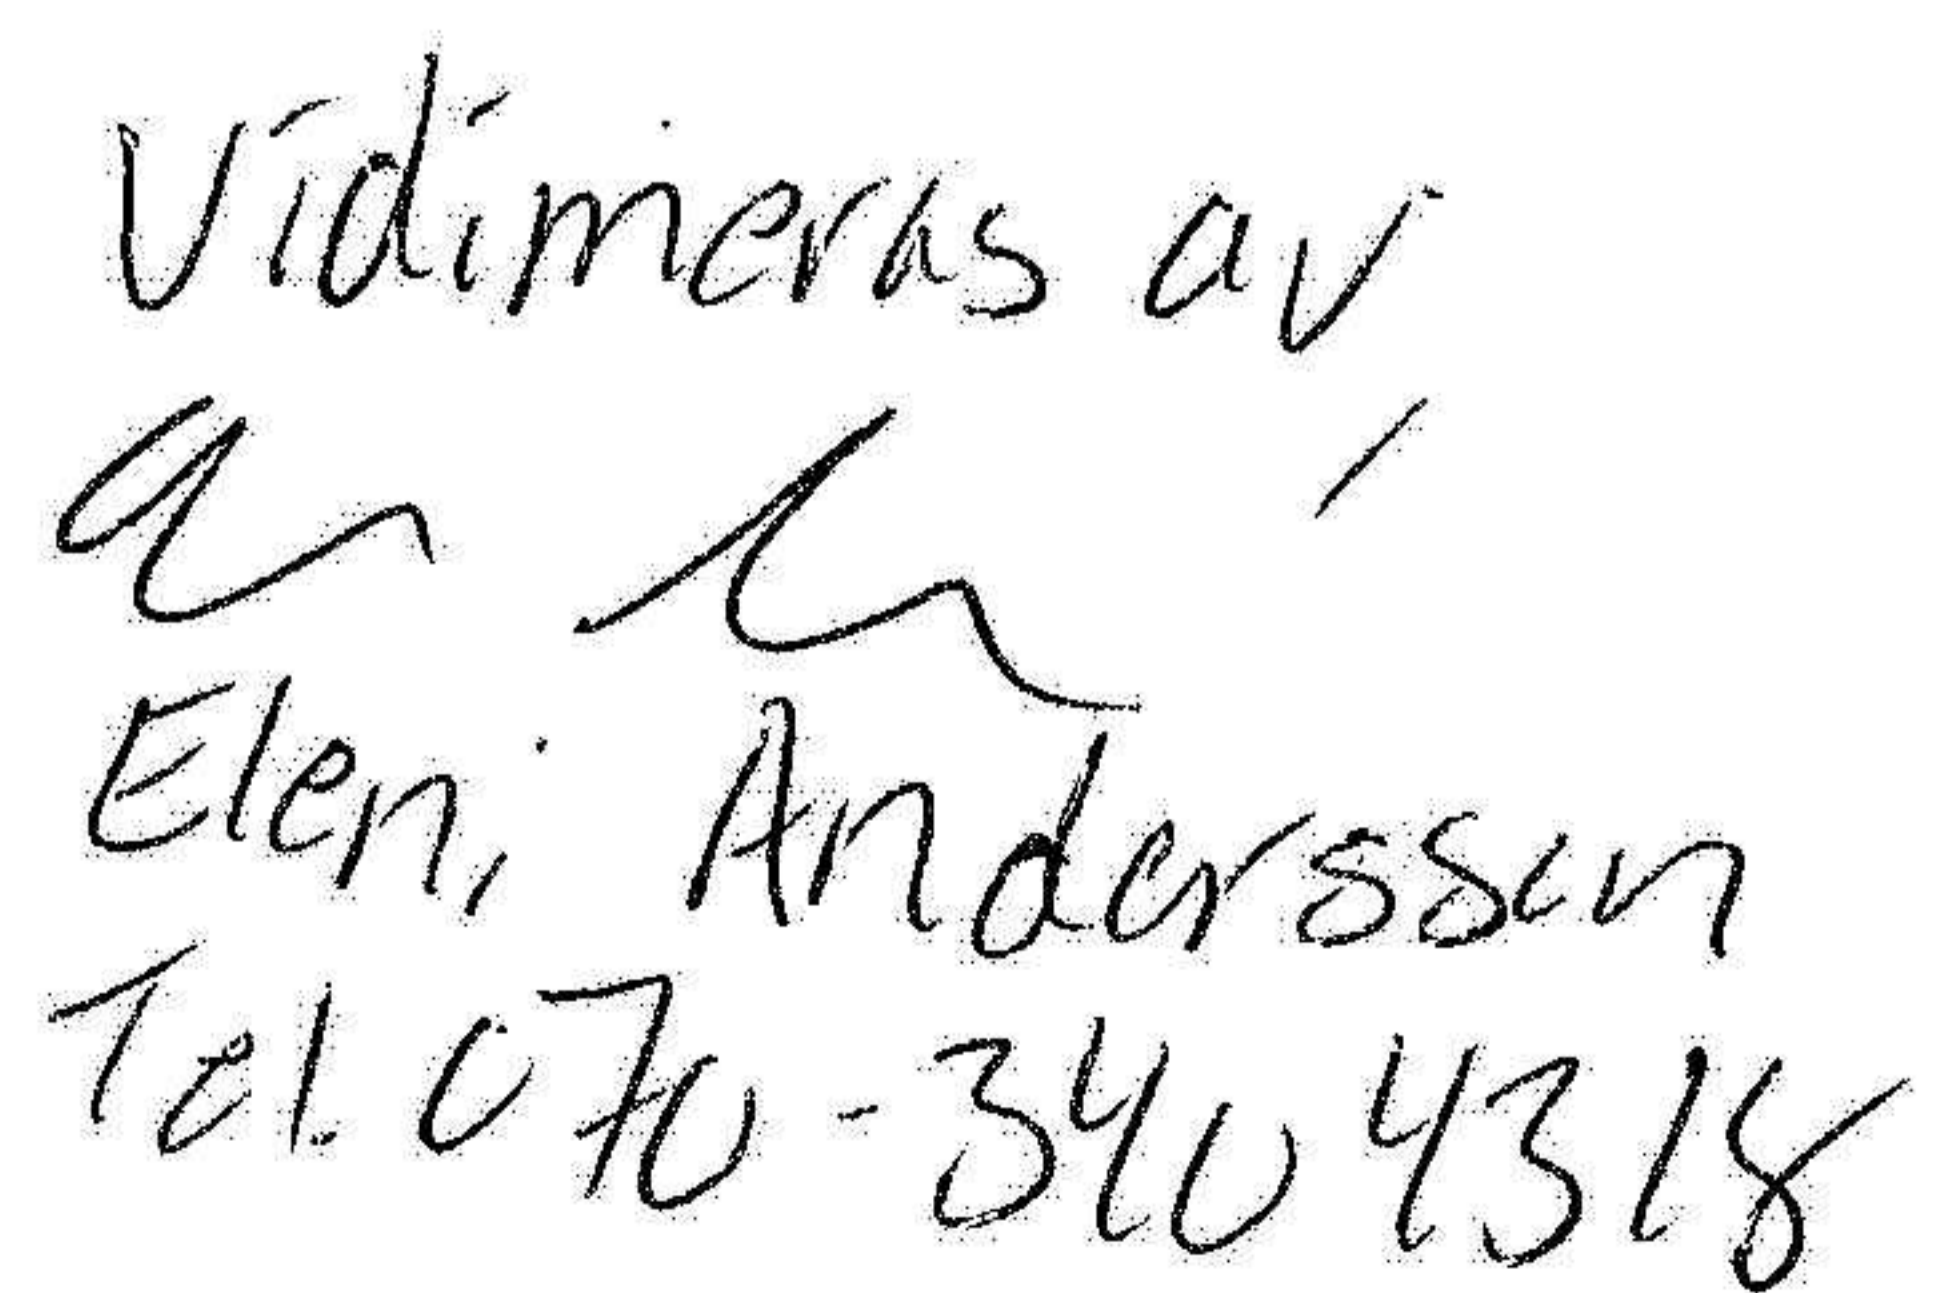 Vidimeras av
Eleni Andersson
Tel. 070-340 43 18